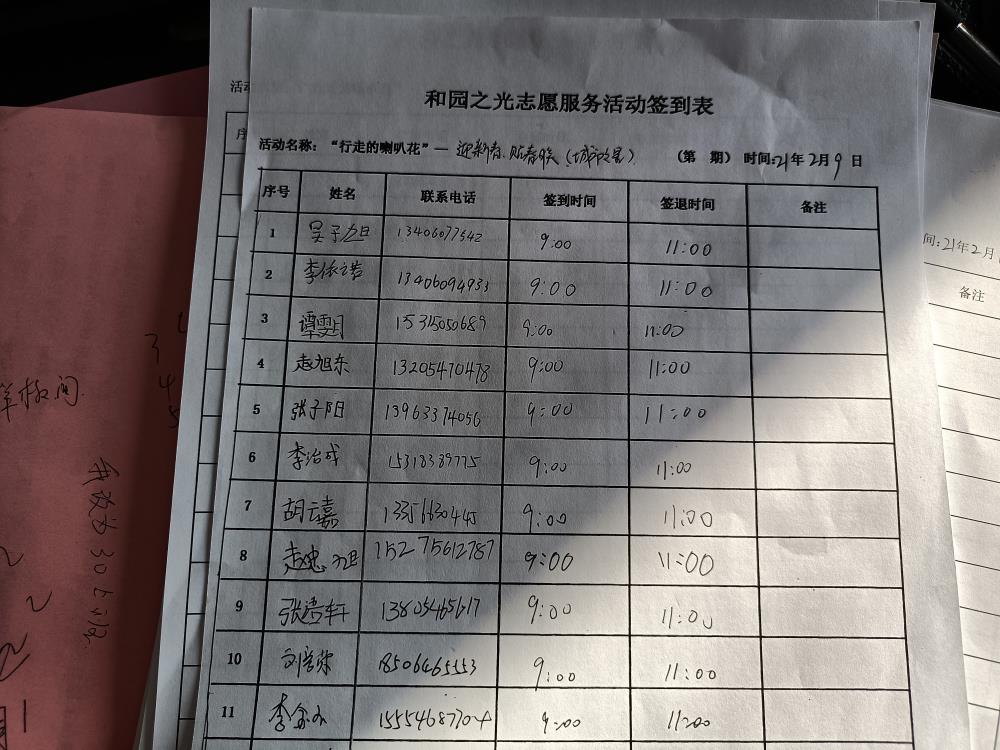 和园之光志愿服务活动签到表
活动名称：“行走的喇叭花”— 迎新春、贴春联（城市之星） （第 期） 时间：21年2月9日
序号 姓名 联系电话 签到时间 签退时间 备注
1 吴子旭 13406077542 9:00 11:00
2 李依诺 13406094933 9:00 11:00
3 谭雯月 15315050689 9:00 11:00
4 赵旭东 13205470478 9:00 11:00
5 张子阳 13963374056 9:00 11:00
6 李治成 15318389775 9:00 11:00
7 胡云嘉 13356630445 9:00 11:00
8 赵忠旭 15275612787 9:00 11:00
9 张浩轩 13805465617 9:00 11:00
10 18506465553 9:00 11:00
11 15554687704 9:00 11:00
活动
序
间：21年2月
备注
样板间
3
4
5